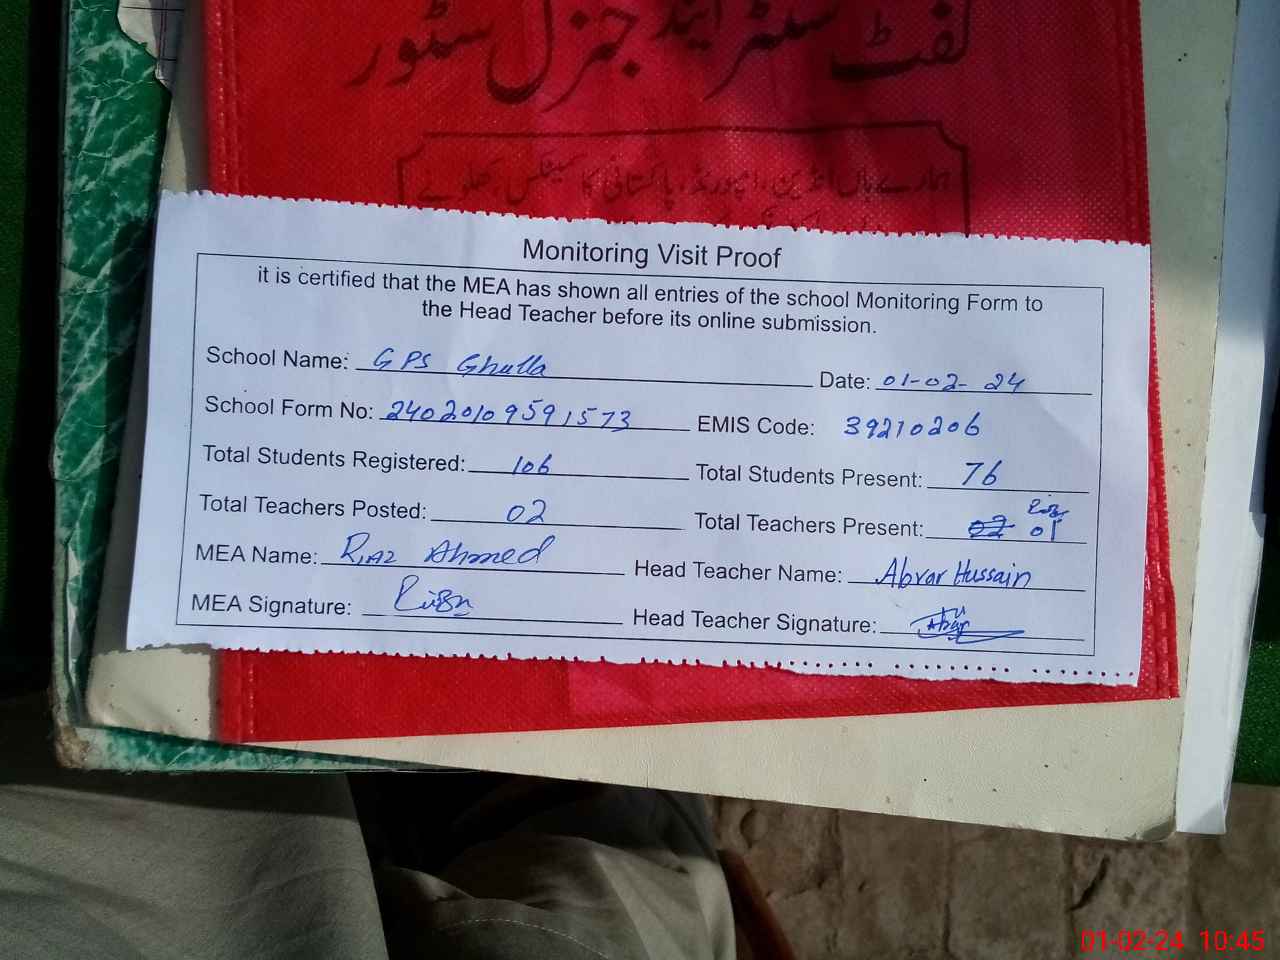 گفٹ سنٹر اینڈ جنرل سٹور
ہمارے ہاں انڈین، امپورٹڈ، پاکستانی کاسمیٹکس، کھلونے
Monitoring Visit Proof
it is certified that the MEA has shown all entries of the school Monitoring Form to
the Head Teacher before its online submission.
School Name: GPS Ghulla Date: 01-02-24
School Form No: 24020109591573 EMIS Code: 39210206
Total Students Registered: 106 Total Students Present: 76
Total Teachers Posted: 02 Total Teachers Present: 01
MEA Name: Riaz Ahmed Head Teacher Name: Abrar Hussain
MEA Signature: Head Teacher Signature:
01-02-24 10:45